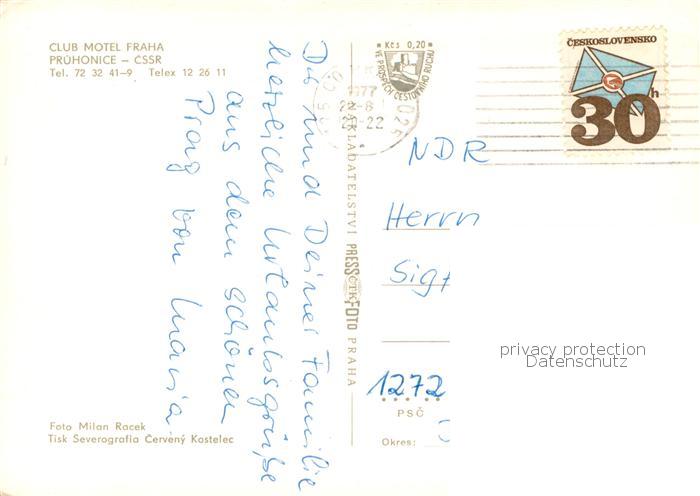 CLUB MOTEL PRAHA
PRŮHONICE – ČSSR
Tel. 72 32 41–9 Telex 12 26 11
Dir und Deiner Familie
herzliche Urlaubsgrüße
aus dem schönen
Prag von Maria.
Foto Milan Racek
Tisk Severografia Červený Kostelec
NAKLADATELSTVÍ PRESSFOTO PRAHA
ČTK
* Kčs 0,20 *
VE PROSPĚCH CESTOVNÍHO RUCHU
1977
22-8
-22
025
ČESKOSLOVENSKO
30h
NDR
Herrn
Sig
1272
PSČ
Okres:
privacy protection
Datenschutz